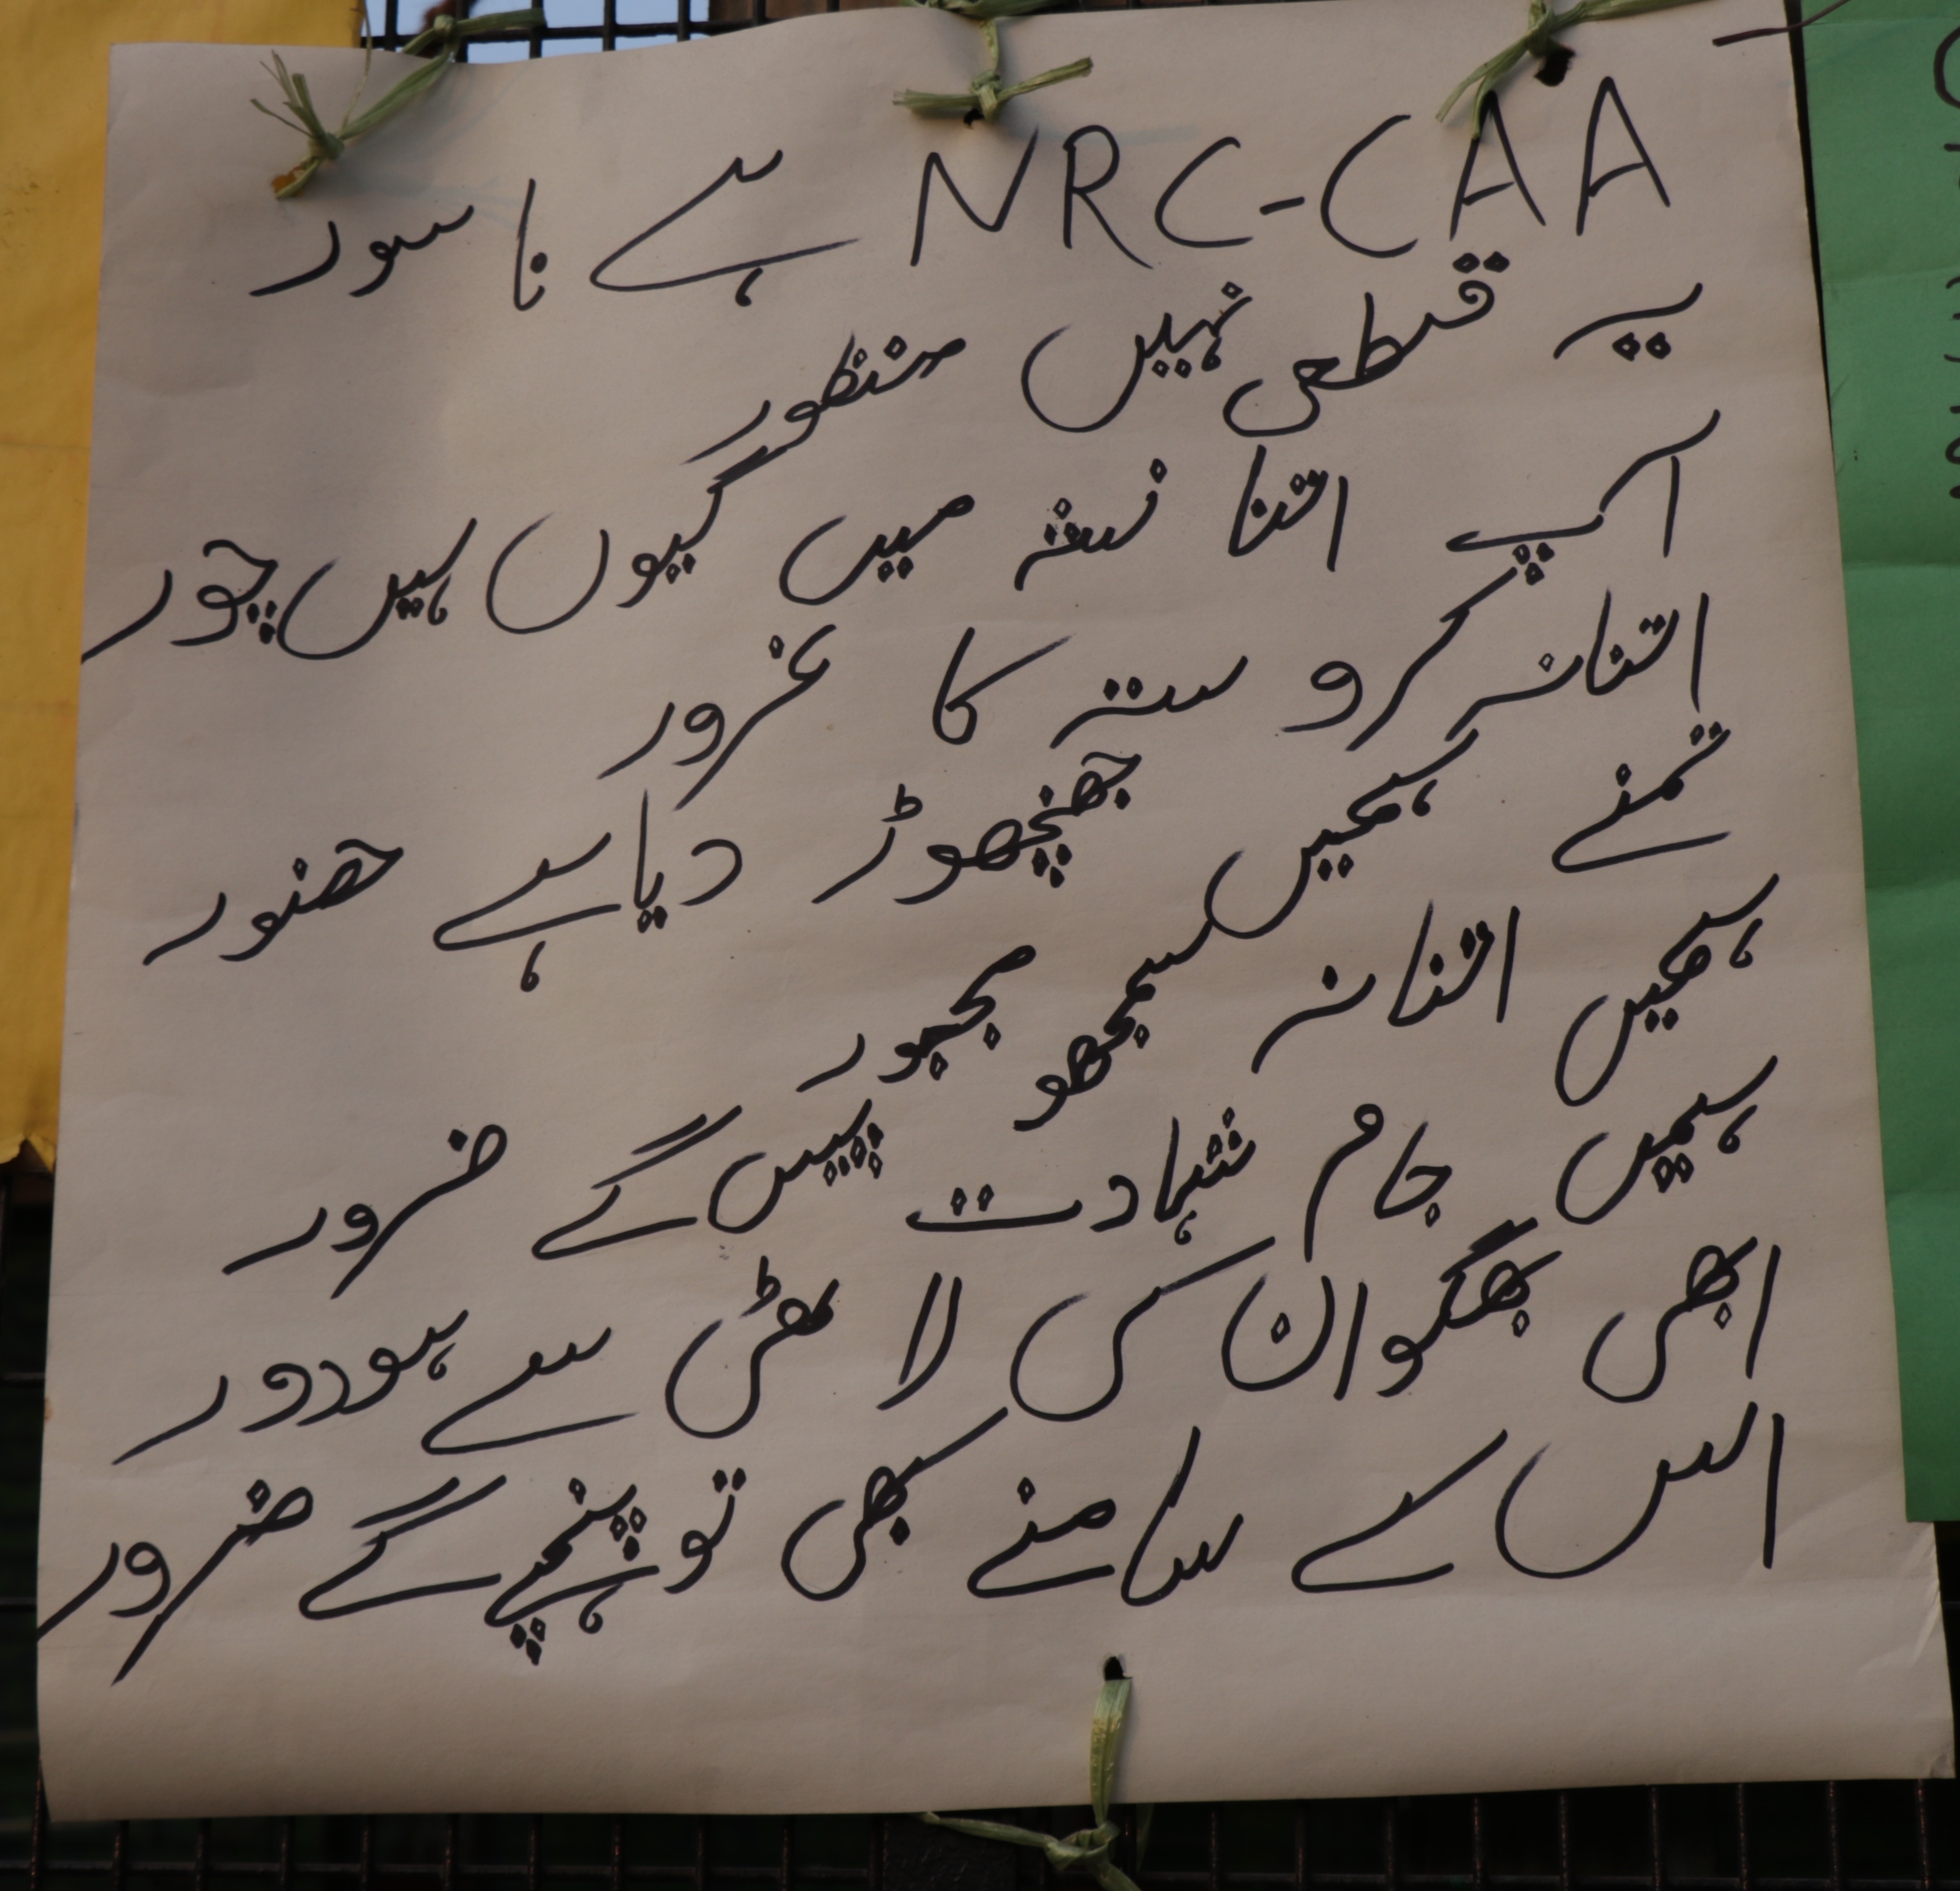 NRC-CAA ہے ناسور
یہ قطعی نہیں منظور
آپ اتنا نشہ میں کیوں ہیں چور
اتنا نہ کرو ستہ کا غرور
تمنے ہمیں جھنجھوڑ دیا ہے حضور
ہمیں اتنا نہ سمجھو مجبور
ہمیں جام شہادت پییں گے ضرور
ابھی بھگوان کی لاٹھی سے ہو دور
اس کے سامنے کبھی تو پہنچے گے ضرور